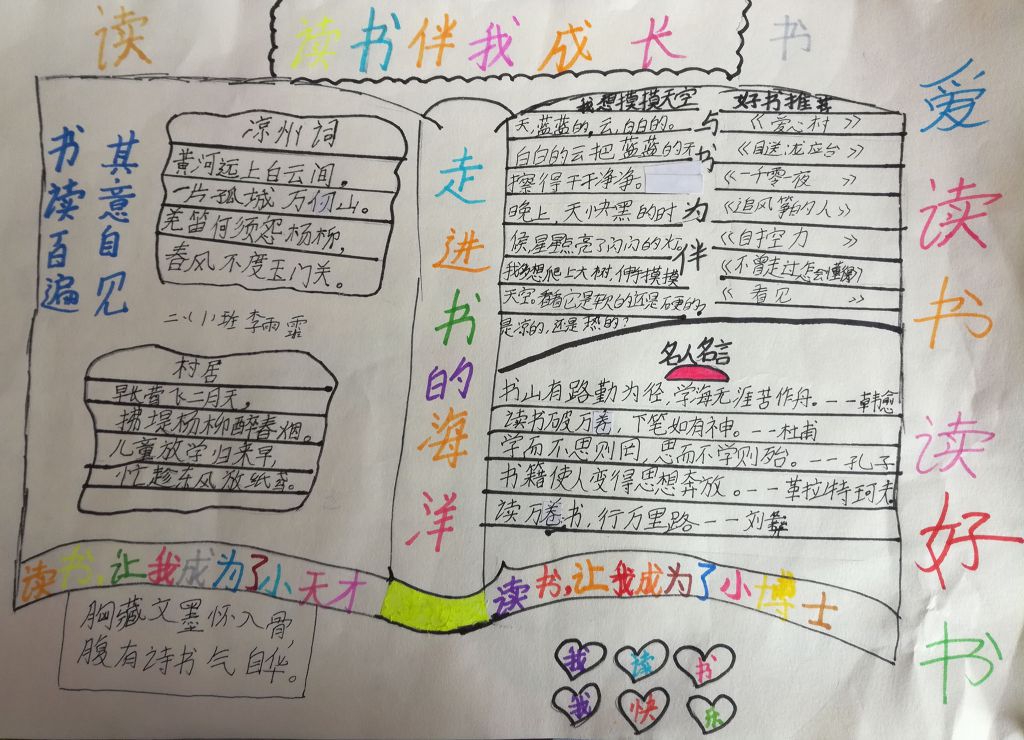 读
读书伴我成长
书
爱读书读好书
书读百遍
其意自见
凉州词
黄河远上白云间，
一片孤城万仞山。
羌笛何须怨杨柳，
春风不度玉门关。
二、(1)班李雨霏
村居
草长莺飞二月天，
拂堤杨柳醉春烟。
儿童放学归来早，
忙趁东风放纸鸢。
走进书的海洋
我想摸摸天空
天，蓝蓝的，云，白白的。
白白的云把蓝蓝的天
擦得干干净净。
晚上，天快黑的时
候星星点亮了闪闪的灯
我多想爬上大树，伸手摸摸
天空。看看它是软的还是硬的，
是凉的，还是热的？
与书为伴
好书推荐
《爱心村》
《目送：龙应台》
《一千零一夜》
《追风筝的人》
《自控力》
《不曾走过，怎会懂得》
《看见》
名人名言
书山有路勤为径，学海无涯苦作舟。——韩愈
读书破万卷，下笔如有神。——杜甫
学而不思则罔，思而不学则殆。——孔子
书籍使人变得思想奔放。——革拉特珂夫
读万卷书，行万里路——刘彝
读书，让我成为了小天才
读书，让我成为了小博士
胸藏文墨怀入骨，
腹有诗书气自华。
我读书
我快乐